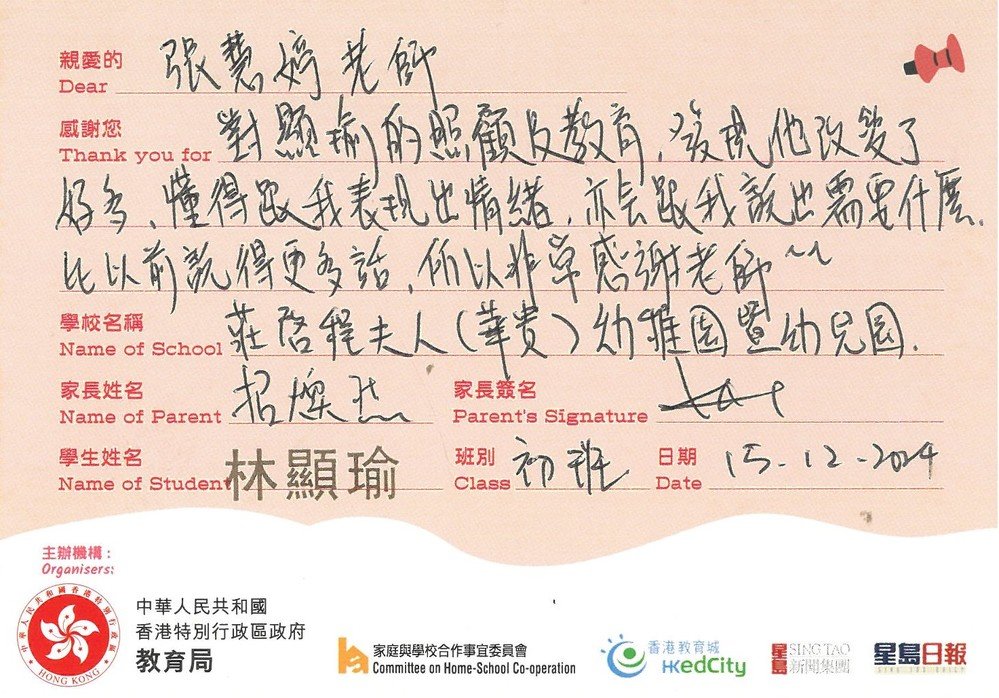 親愛的 張慧婷老師
Dear
感謝您 對顯瑜的照顧及教育，發現他改變了
Thank you for
好多，懂得跟我表現出情緒，亦会跟我說出需要什麼，
比以前說得更多話，所以非常感謝老師~~
學校名稱 莊啓程夫人(華貴)幼稚園暨幼兒园.
Name of School
家長姓名 家長簽名
Name of Parent 招 Parent's Signature
學生姓名 林顯瑜 班別 初班 日期 15-12-2024
Name of Student Class Date
主辦機構：
Organisers:
中華人民共和國香港特別行政區政府
HONG KONG
中華人民共和國
香港特別行政區政府
教育局
家庭與學校合作事宜委員會
Committee on Home-School Co-operation
香港教育城
HKedCity
星島 SING TAO
新聞集團
星島日報
SING TAO DAILY